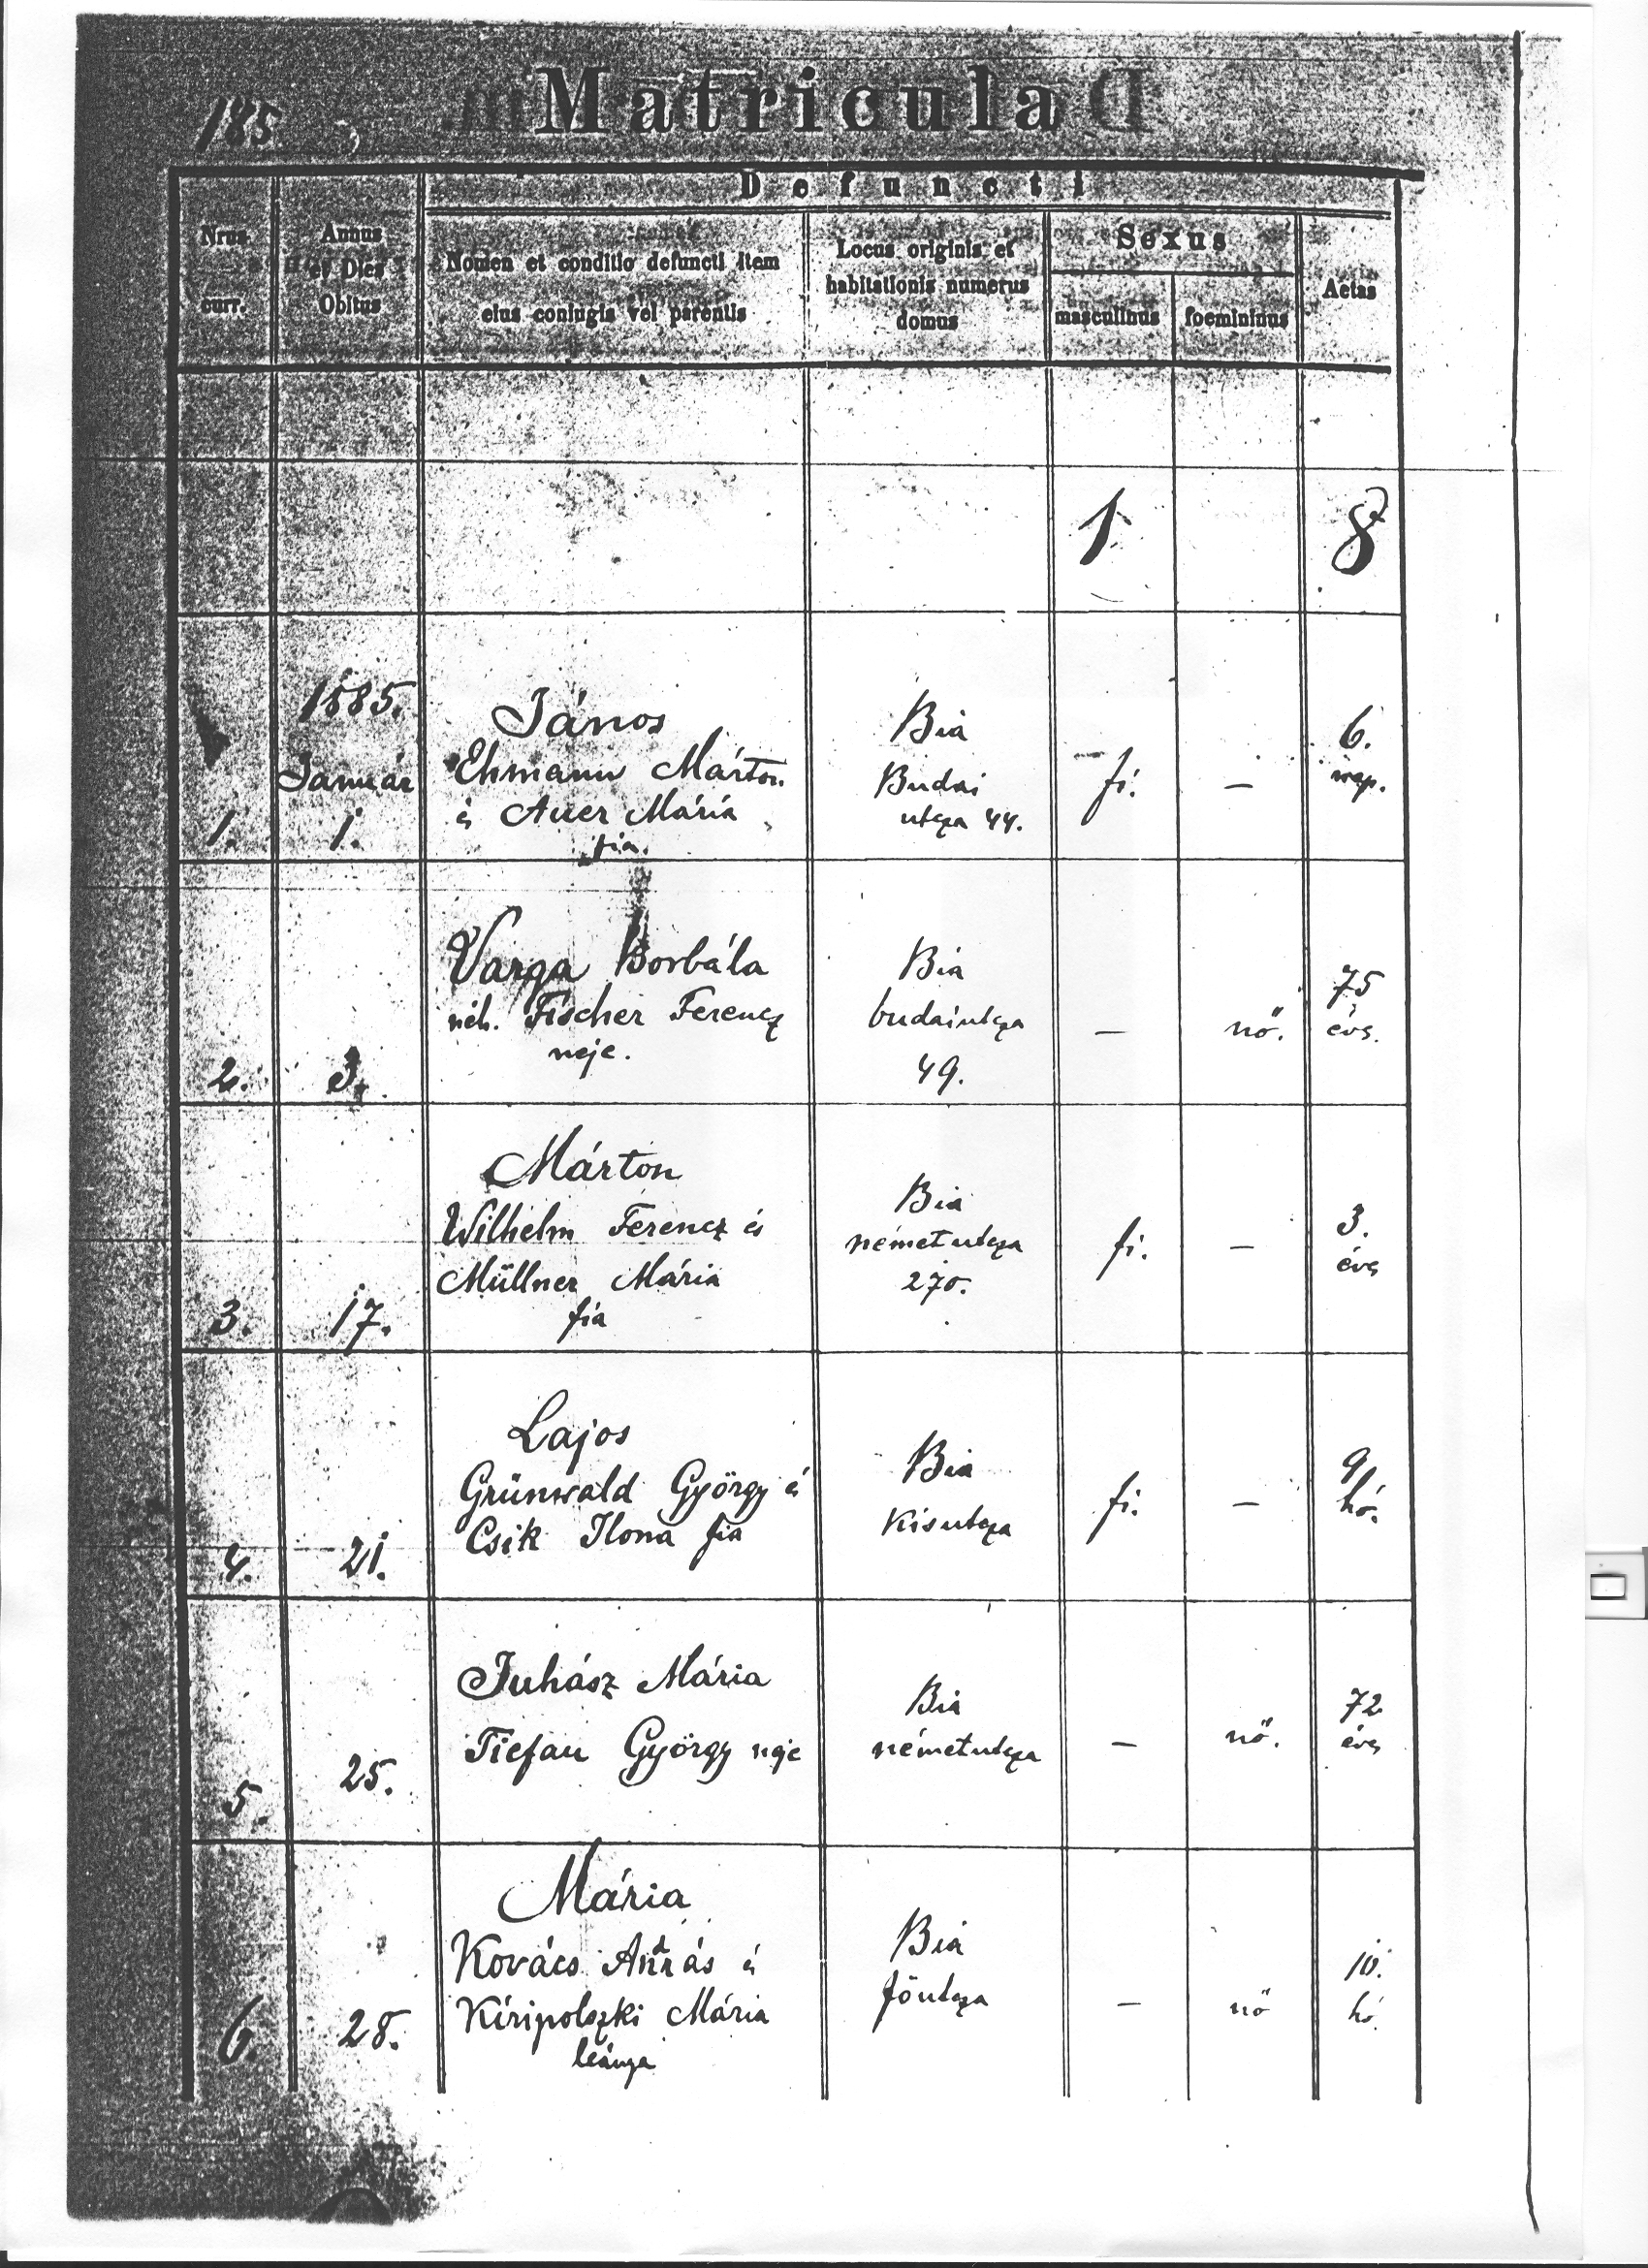 185
Matricula
Defuncti
Nrus curr.
Annus et Dies Obitus
Nomen et conditio defuncti item eius coniugis vel parentis
Locus originis et habitationis numerus domus
Sexus
masculinus
foemininus
Aetas
1
8
1.
1885.
Január
1.
János
Ehmann Márton
és Auer Mária
fia.
Bia
Budai
utcza 44.
fi.
—
6.
nap.
2.
3.
Varga Borbála
néh. Fischer Ferencz
neje.
Bia
budaiutcza
49.
—
nő.
75
éves.
3.
17.
Márton
Wilhelm Ferencz és
Müllner Mária
fia
Bia
németutcza
270.
fi.
—
3.
éves
4.
21.
Lajos
Grünwald György és
Csik Ilona fia
Bia
Kisutcza
fi.
—
9
hó.
5.
25.
Juhász Mária
Tiefau György neje
Bia
németutcza
—
nő.
72
éves
6.
28.
Mária
Kovács András és
Kiripolszki Mária
leánya
Bia
főutcza
—
nő
10.
hó.